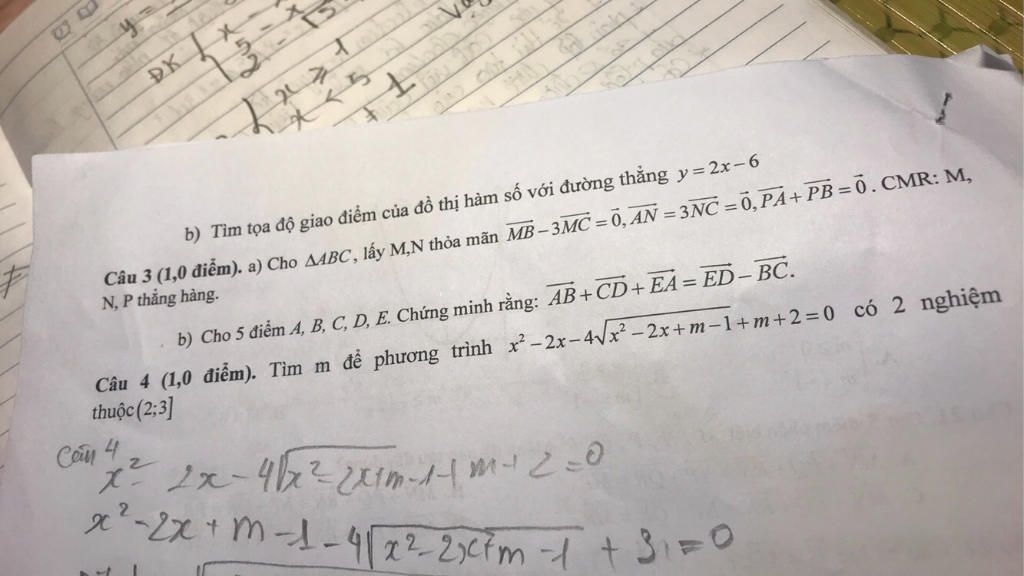 y =
ĐK { x -
{ x ≥ 1
x < 5
+ 1
b) Tìm tọa độ giao điểm của đồ thị hàm số với đường thẳng y = 2x − 6
Câu 3 (1,0 điểm). a) Cho ΔABC, lấy M,N thỏa mãn \overrightarrow{MB} − 3\overrightarrow{MC} = \vec{0}, \overrightarrow{AN} = 3\overrightarrow{NC} = \vec{0}, \overrightarrow{PA} + \overrightarrow{PB} = \vec{0}. CMR: M,
N, P thẳng hàng.
b) Cho 5 điểm A, B, C, D, E. Chứng minh rằng: \overrightarrow{AB} + \overrightarrow{CD} + \overrightarrow{EA} = \overrightarrow{ED} − \overrightarrow{BC}.
Câu 4 (1,0 điểm). Tìm m để phương trình x² − 2x − 4√(x² − 2x + m − 1) + m + 2 = 0 có 2 nghiệm
thuộc (2;3]
Câu 4
x² - 2x - 4√(x² - 2x + m - 1) + m + 2 = 0
x² - 2x + m - 1 - 4√(x² - 2x + m - 1) + 3 = 0